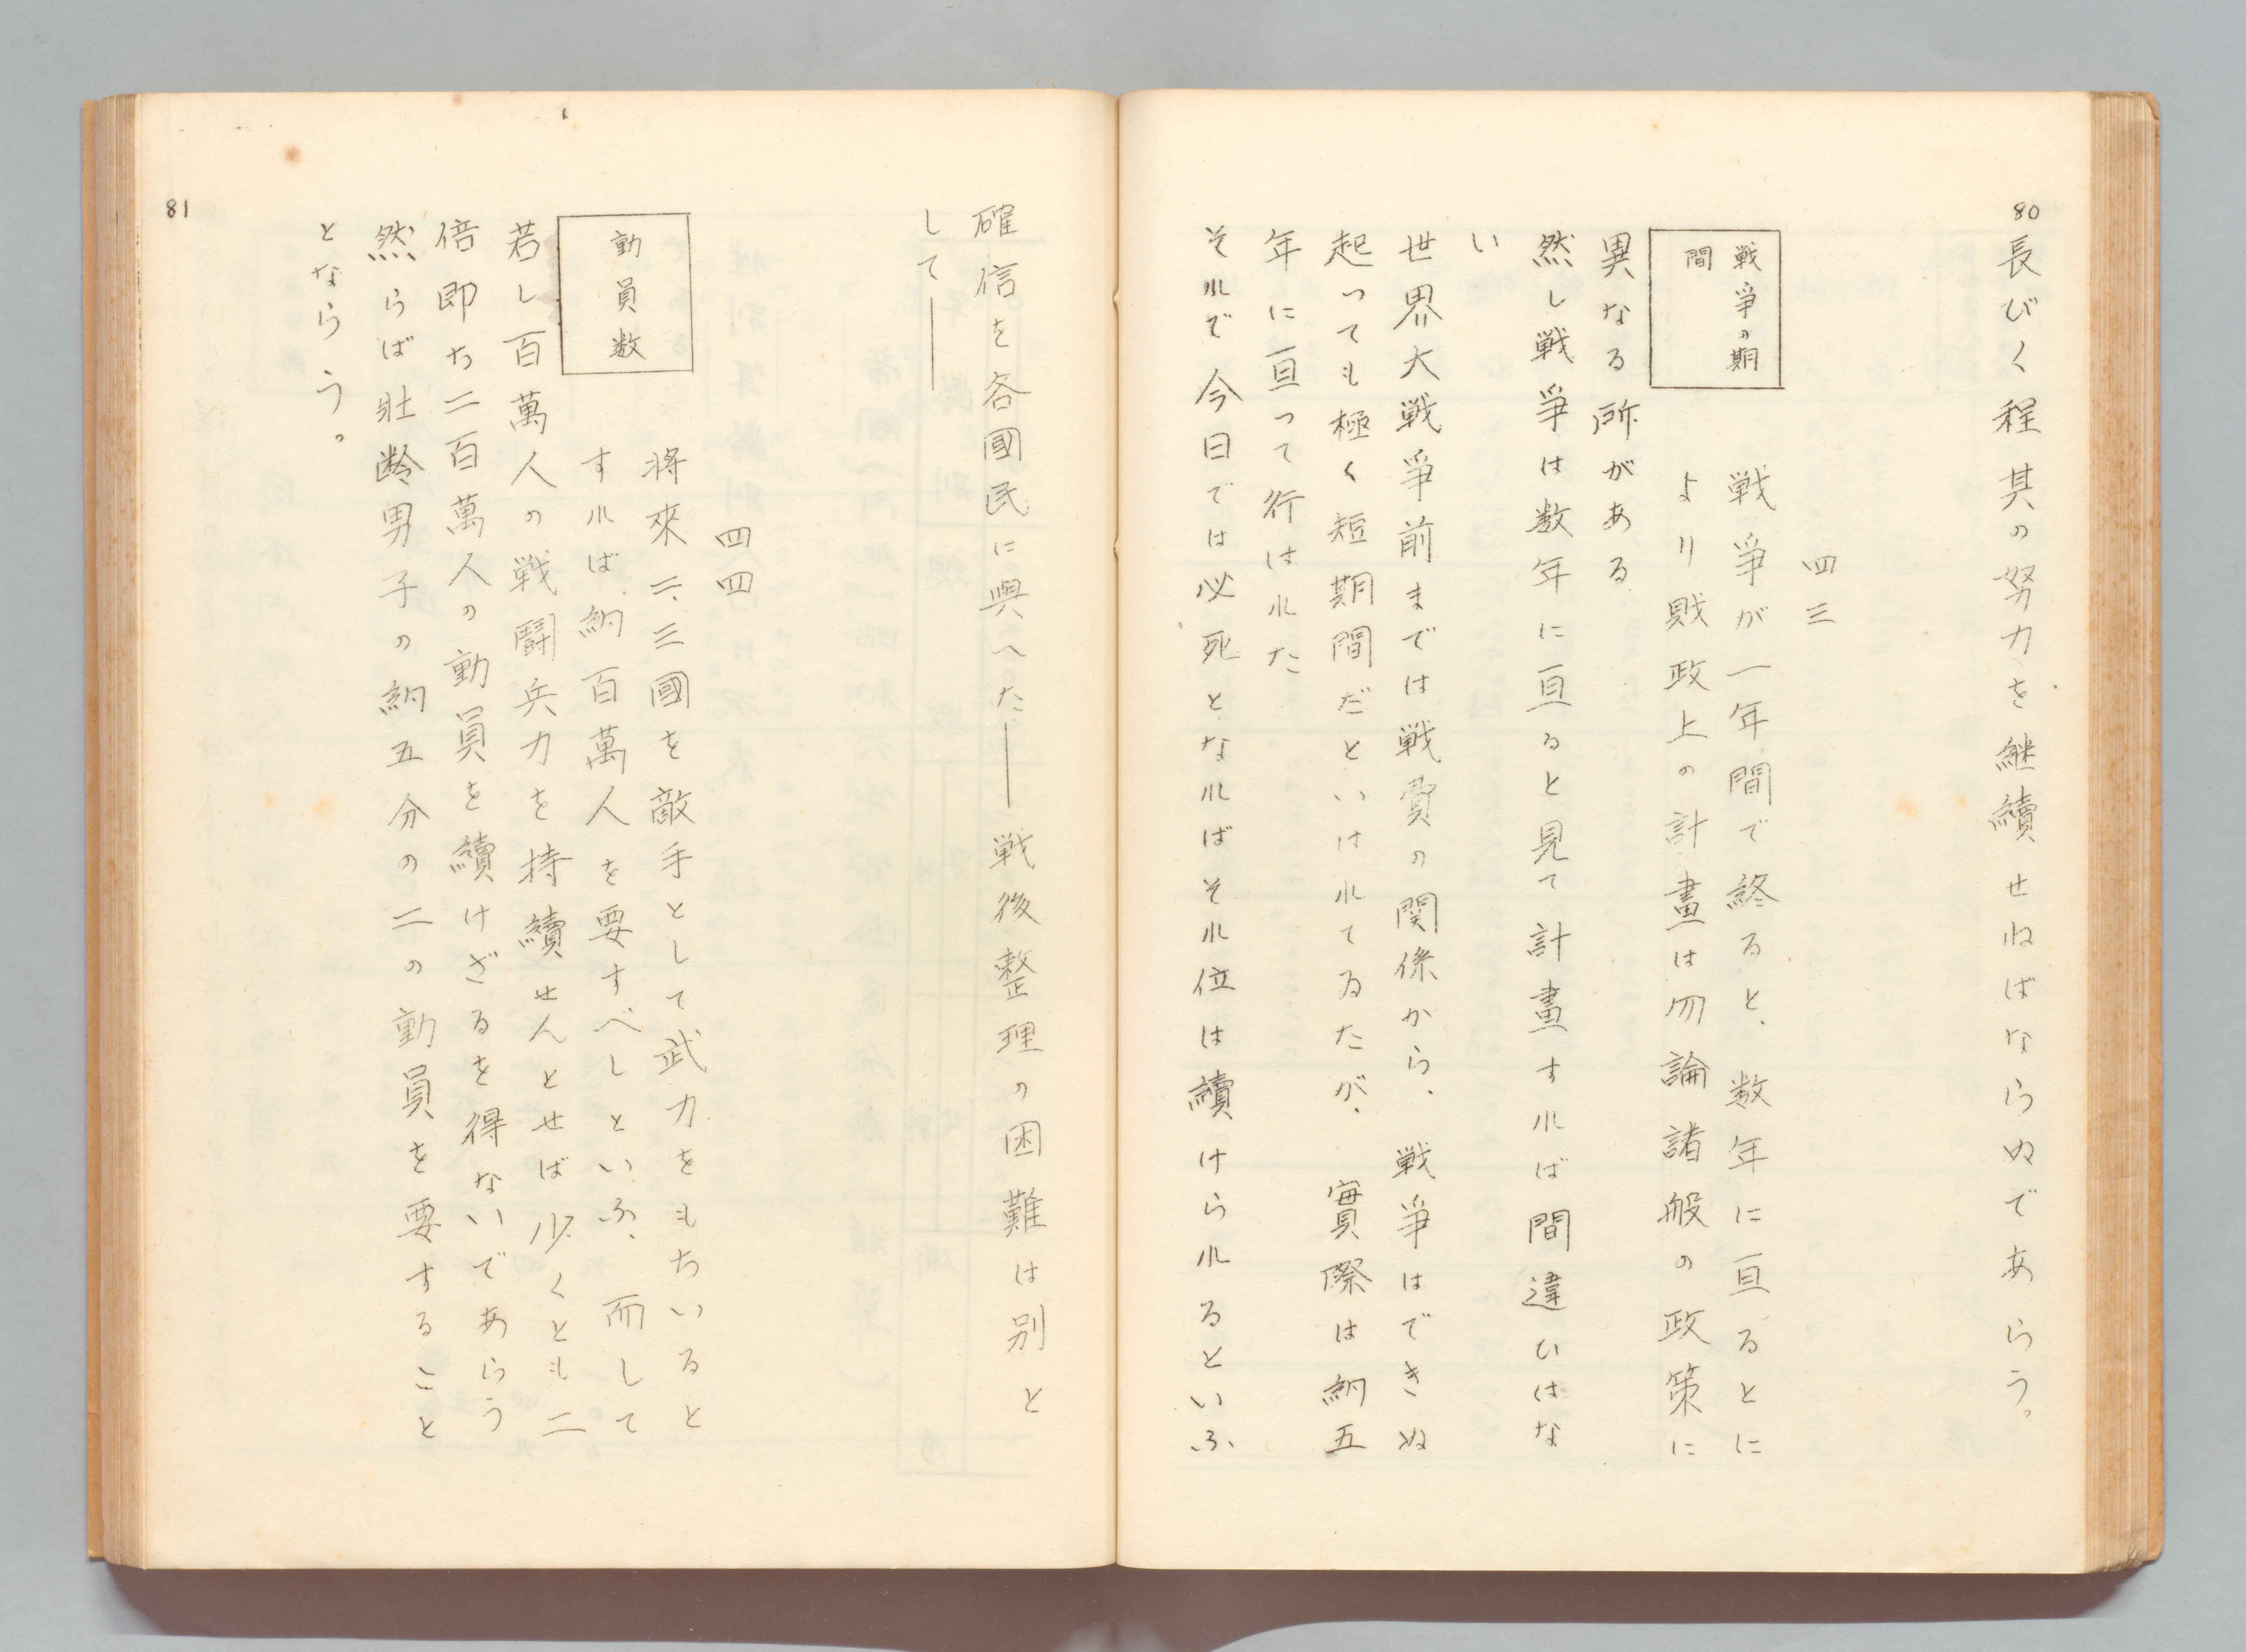 80
長びく程其の努力を継續せねばならぬであらう。
四三
戦爭の期
間
戦爭が一年間で終ると、数年に亘るとに
より財政上の計畫は勿論諸般の政策に
異なる所がある
然し戦爭は数年に亘ると見て計畫すれば間違ひはな
い
世界大戦爭前までは戦費の関係から、戦爭はできぬ
起っても極く短期間だといはれてゐたが、實際は約五
年に亘って行はれた
それで今日では必死となればそれ位は續けられるといふ
確信を各國民に與へた――戦後整理の困難は別と
して――
四四
動員数
将來二、三國を敵手として武力をもちいると
すれば約百萬人を要すべしといふ、而して
若し百萬人の戦闘兵力を持續せんとせば少くとも二
倍即ち二百萬人の動員を續けざるを得ないであらう
然らば壯齢男子の約五分の二の動員を要すること
とならう。
81